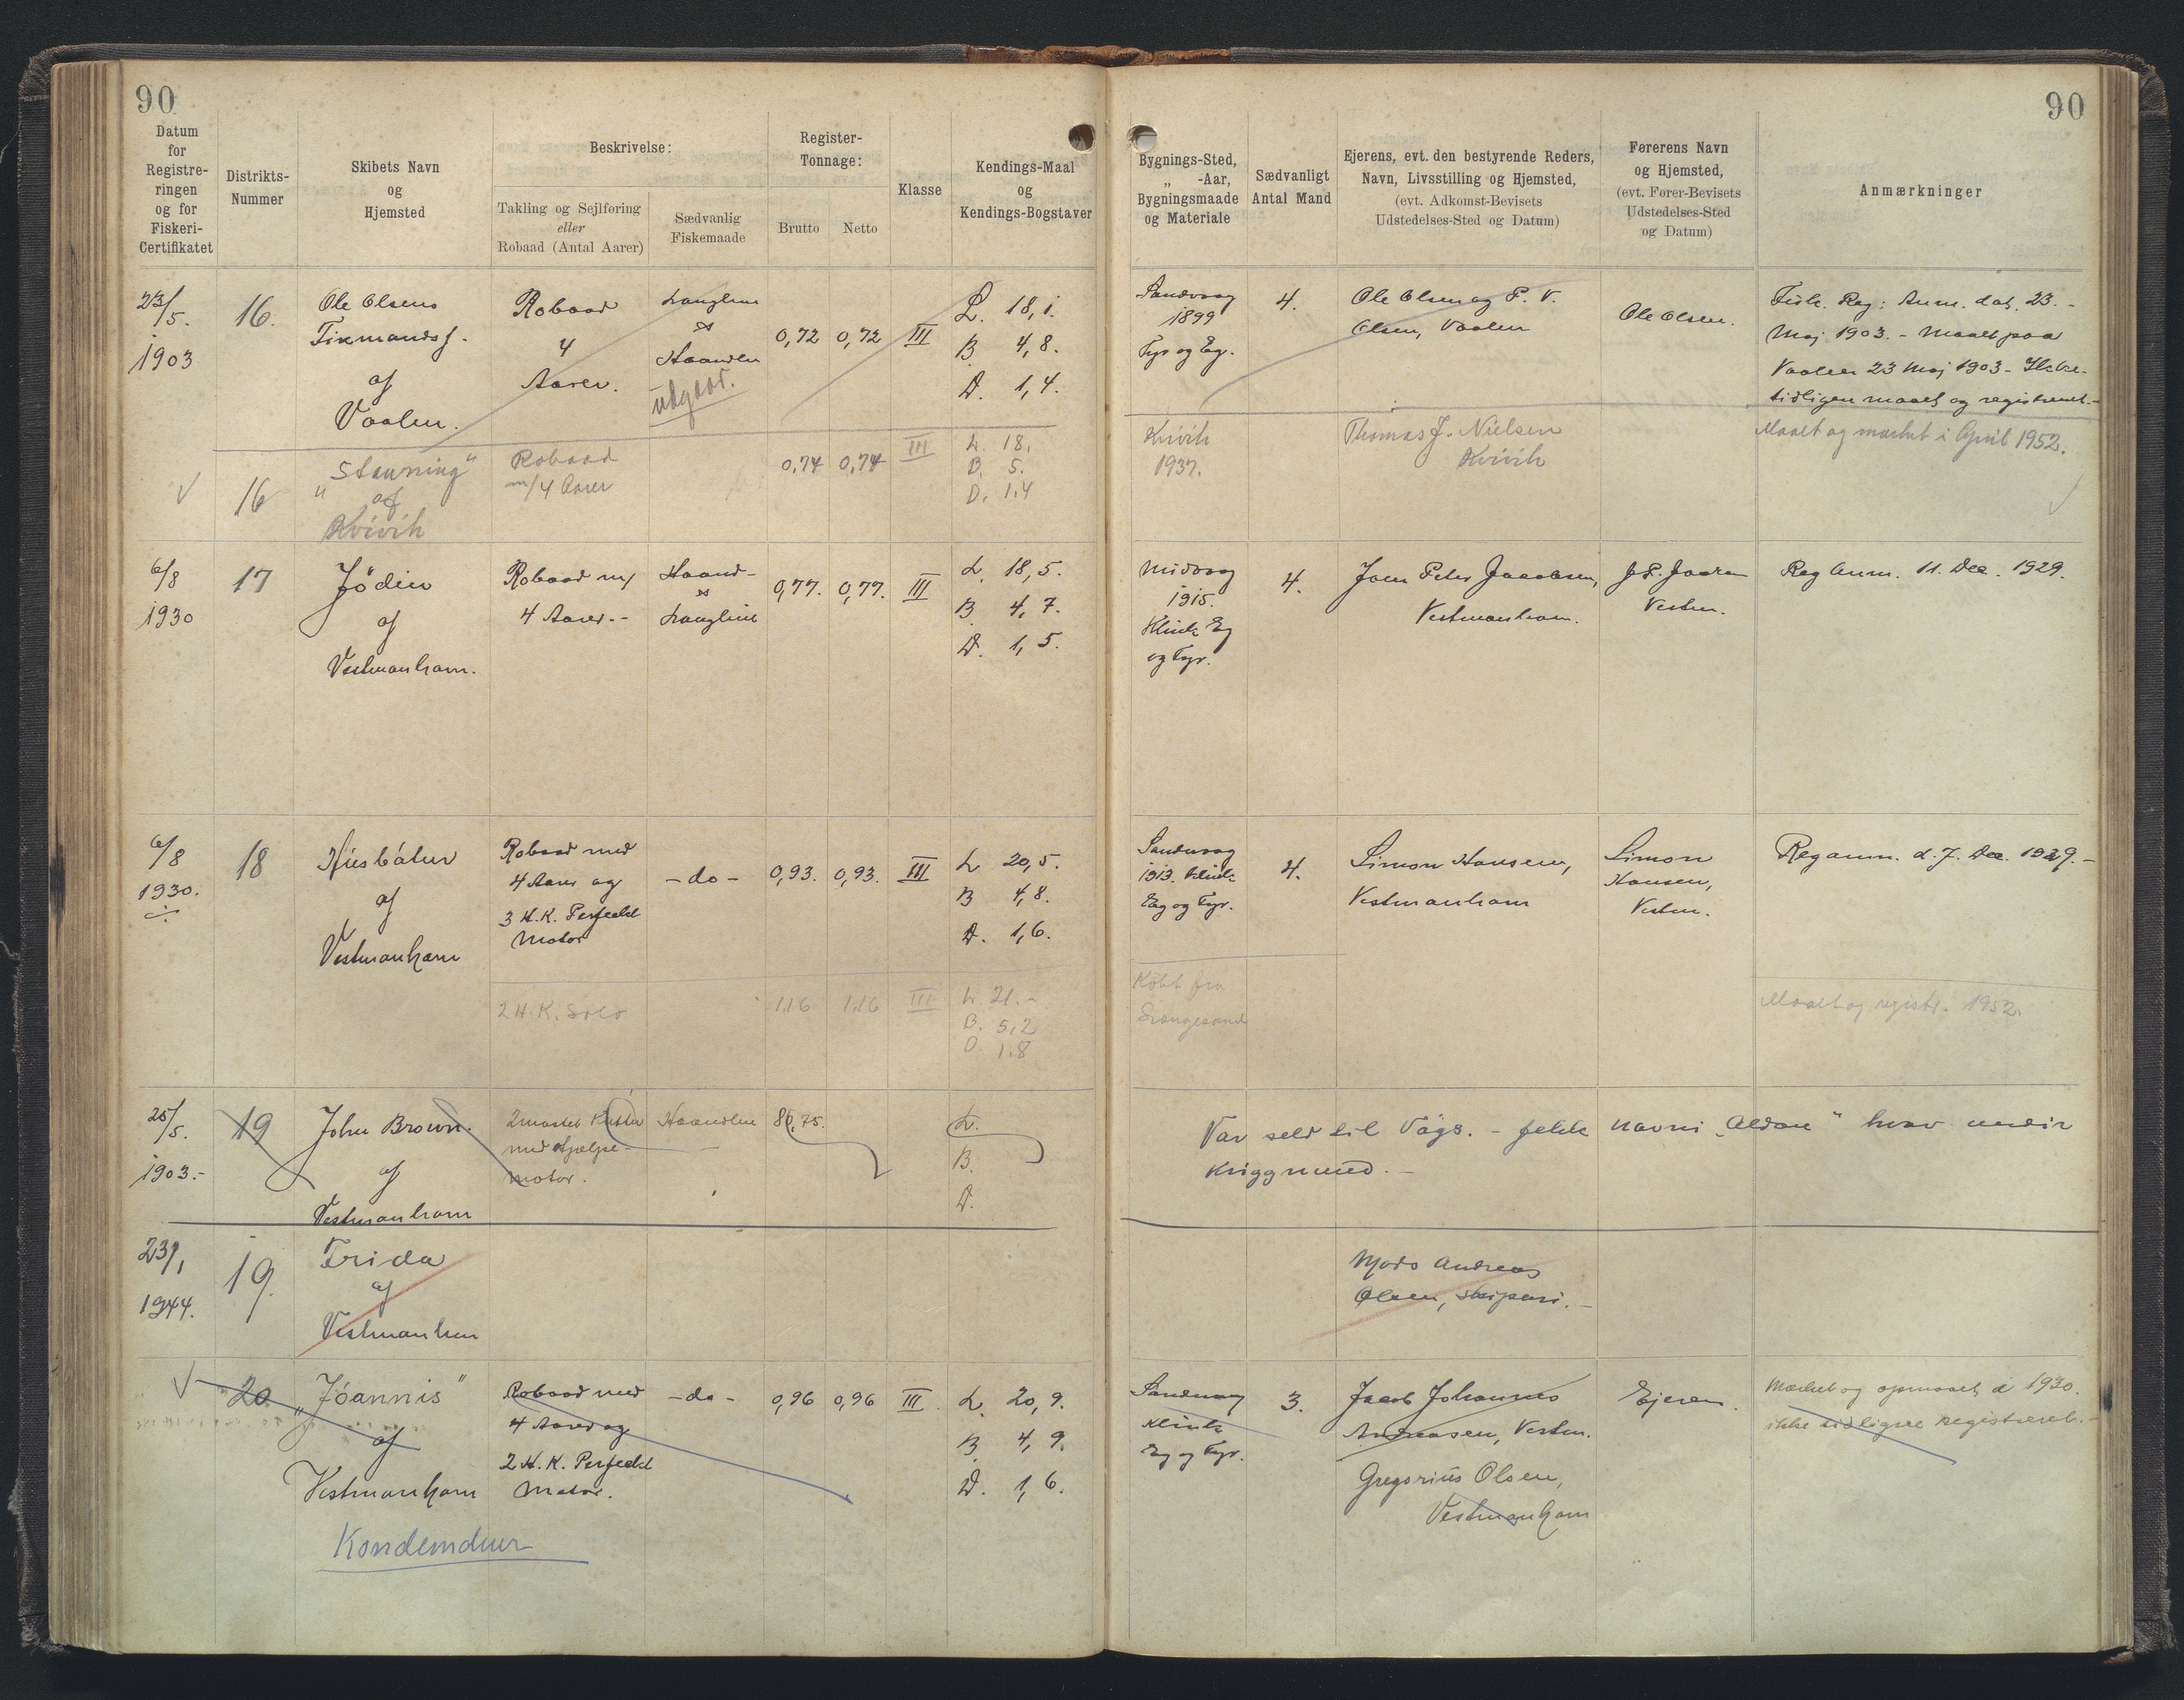 90
90
Datum
for
Registre-
ringen
og for
Fiskeri-
Certifikatet
Distrikts-
Nummer
Skibets Navn
og
Hjemsted
Beskrivelse:
Takling og Sejlføring
eller
Robaad (Antal Aarer)
Sædvanlig
Fiskemaade
Register-
Tonnage:
Brutto
Netto
Klasse
Kendings-Maal
og
Kendings-Bogstaver
Bygnings-Sted,
„ -Aar,
Bygningsmaade
og Materiale
Sædvanligt
Antal Mand
Ejerens, evt. den bestyrende Reders,
Navn, Livsstilling og Hjemsted,
(evt. Adkomst-Bevisets
Udstedelses-Sted og Datum)
Førerens Navn
og Hjemsted,
(evt. Fører-Bevisets
Udstedelses-Sted
og Datum)
Anmærkninger
23/5.
1903
16.
Ole Olsens
af
Vaalen.
Robaad
4
Aarer.
Langline
&
Haandln
udgaar.
0,72
0,72
III
L. 18,1.
B. 4,8.
D. 1,4.
Sandvaag
1899
Fyr og Eg.
4.
Ole Olsen og P. V.
Olsen, Vaalen
Ole Olsen.
Fisk. Reg: Anm. dat. 23.-
Maj 1903. - Maalt paa
Vaalen 23 Maj 1903 - Ikke
tidligere maalt og registreret.-
16
"Stavning"
af
Kvívík
Robaad
m/4 Aarer
0,74
0,74
III
L. 18.
B. 5.
D. 1.4
Kvívík
1937.
Thomas J. Nielsen
Kvívík
Maalt og mærket i April 1952.
6/8
1930
17
Jödin
af
Vestmanhavn.
Robaad m/
4 Aarer.-
Haand-
&
Langline
0,77.
0,77.
III
L. 18,5.
B. 4,7.
D. 1,5.
Midvaag
1915.
Klink Eg
og Fyr.
4.
Joen Peter Jacobsen,
Vestmanhavn.
Vestm.
Reg Anm. 11. Dec. 1929.
6/8
1930.
18
Húsbátur
af
Vestmanhavn
Robaad med
4 Aarer og
3 H.K. Perfeckt
Motor
- do -
0,93.
0,93.
III
L 20,5.
B 4,8.
D. 1,6.
Sandvaag
1913. Klink
Eg og Fyr.
4.
Simon Hansen,
Vestmanhavn
Simon
Hansen,
Vestm.
Reg anm. d. 7. Dec. 1929.-
2 H.K. Solo
1,16
1,16
III
L. 21.-
B. 5,2
D 1.8
Köbt fra
Maalt og registr. 1952.
25/5.
1903.-
19
John Brown.
af
Vestmanhavn
2mastet Kutter
med Hjælpe-
motor.
Haandline
80,75.
L.
B.
D.
Var seld til Vågs. - fekk navni "Aldan" hvarv undir
Krígnum.-
23/1
1944.
19.
Frida
af
Vestmanhvn
Mads Andreas
Olsen, skipari.-
20
"Jóannis"
af
Vestmanhavn
Kondemdur
Robaad med
4 Aarer og
2 H.K. Perfeckt
Motor.
- do -
0,96
0,96
III
L. 20,9.
B 4,9.
D. 1,6.
Sandvaag
Klink
Eg og Fyr.
3.
Jacob Johannes
Andreasen, Vestm.
Gregorius Olsen,
Vestmanhavn
Ejeren.
Mærket og opmaalt i 1930.
ikke tidligere registreret.-